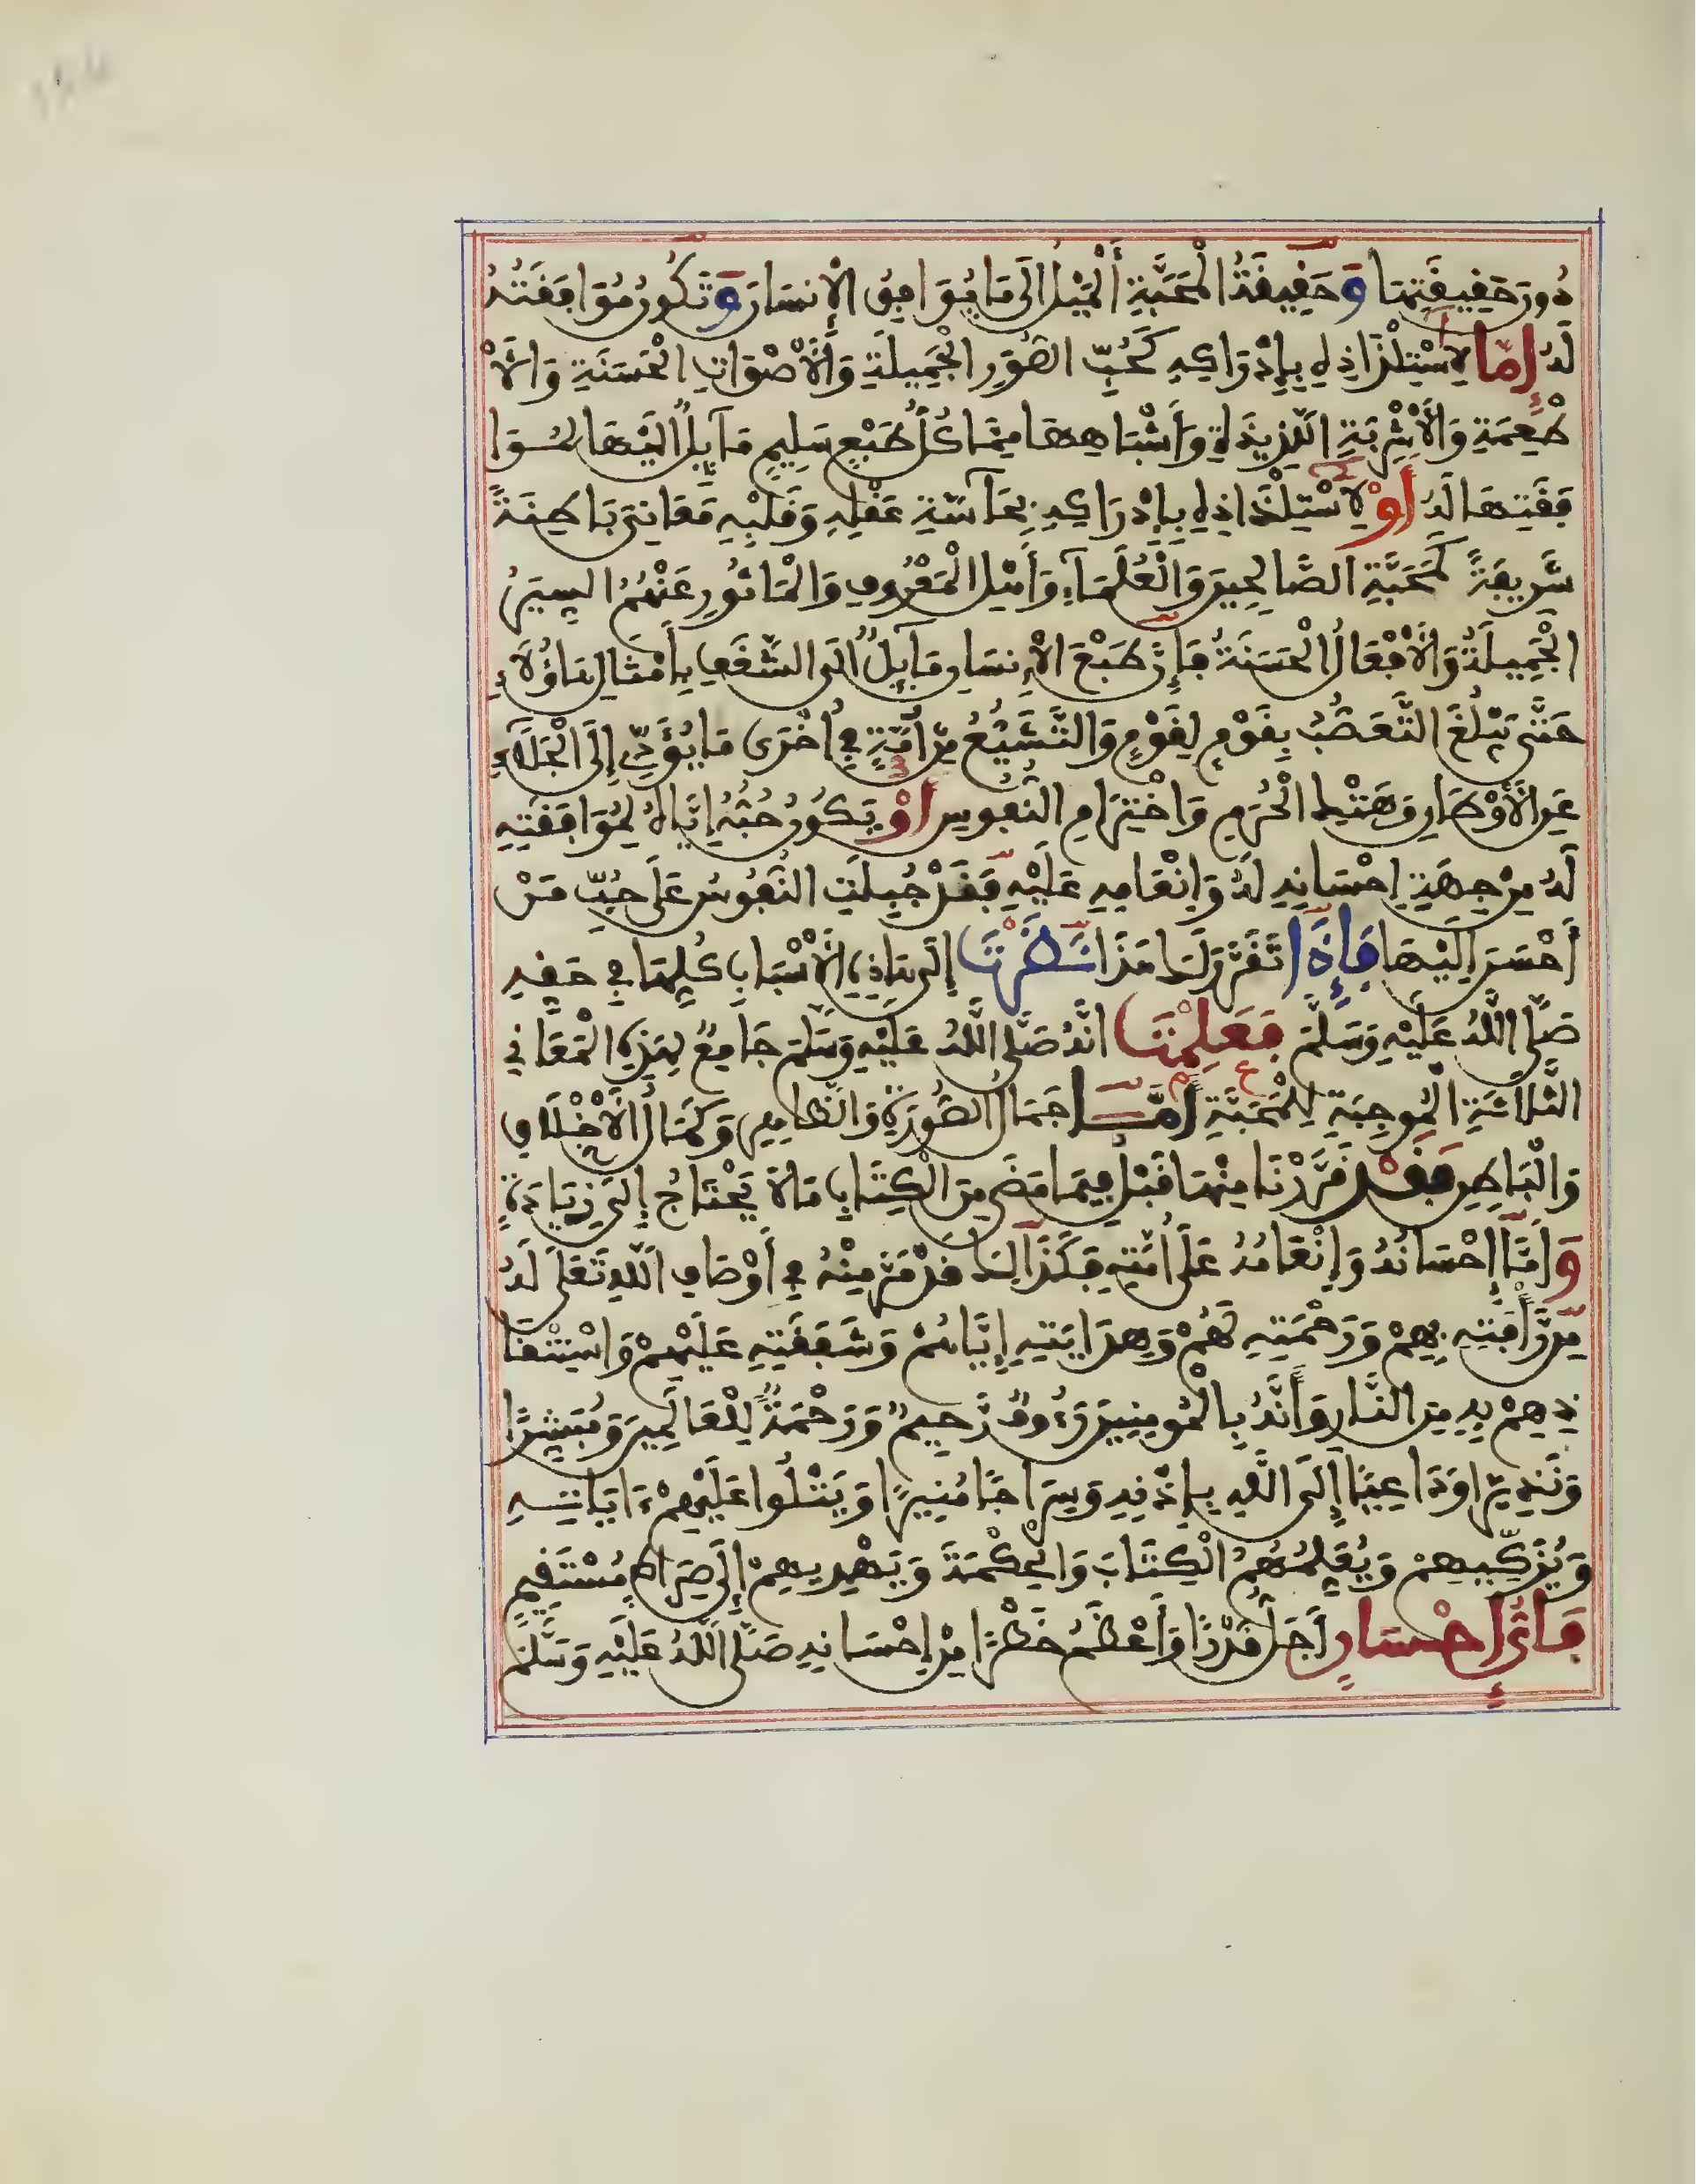 دُونَ حَقِيقَتِهَا وَحَقِيقَةُ الْمَحَبَّةِ الْمَيْلُ إِلَى مَا يُوَافِقُ الْإِنسَانَ وَتَكُونُ مُوَافَقَتُهُ
لَهُ إِمَّا لِاسْتِلْذَاذِهِ بِإِدْرَاكِهِ كَحُبِّ الصُّوَرِ الْجَمِيلَةِ وَالْأَصْوَاتِ الْحَسَنَةِ وَالْأَ
طْعِمَةِ وَالْأَشْرِبَةِ اللَّذِيذَةِ وَأَشْبَاهِهَا مِمَّا كُلُّ طَبْعٍ سَلِيمٍ مَائِلٌ إِلَيْهَا لِمُوَا
فَقَتِهَا لَهُ أَوْ لِاسْتِلْذَاذِهِ بِإِدْرَاكِهِ بِحَاسَّةِ عَقْلِهِ وَقَلْبِهِ مَعَانِيَ بَاطِنَةً
شَرِيفَةً كَمَحَبَّةِ الصَّالِحِينَ وَالْعُلَمَاءِ وَأَهْلِ الْمَعْرُوفِ وَالْمَاثُورِ عَنْهُمُ السِّيَرُ
الْجَمِيلَةُ وَالْأَفْعَالُ الْحَسَنَةُ فَإِنَّ طَبْعَ الْإِنسَانِ مَائِلٌ إِلَى الشَّغَفِ بِأَمْثَالِ هَاؤُلَاءِ
حَتَّى يَبْلُغَ التَّعَصُّبُ بِقَوْمٍ لِقَوْمٍ وَالتَّشَيُّعُ مِنْ أُمَّةٍ فِي أُخْرَى مَا يُؤَدِّي إِلَى الْجَلَاءِ
عَنِ الْأَوْطَانِ وَهَتْكِ الْحُرَمِ وَاخْتِرَامِ النُّفُوسِ أَوْ يَكُونُ حُبُّهُ إِيَّاهُ لِمُوَافَقَتِهِ
لَهُ مِنْ جِهَةِ إِحْسَانِهِ لَهُ وَإِنْعَامِهِ عَلَيْهِ فَقَدْ جُبِلَتِ النُّفُوسُ عَلَى حُبِّ مَنْ
أَحْسَنَ إِلَيْهَا فَإِذَا تَقَرَّرَ لَكَ هَذَا نَظَرْتَ إِلَى هَاذِهِ الْأَسْبَابِ كُلِّهَا فِي حَقِّهِ
صَلَّى اللَّهُ عَلَيْهِ وَسَلَّمَ فَعَلِمْتَ أَنَّهُ صَلَّى اللَّهُ عَلَيْهِ وَسَلَّمَ جَامِعٌ لِهَذِهِ الْمَعَانِي
الثَّلَاثَةِ الْمُوجِبَةِ لِلْمَحَبَّةِ أَمَّا جَمَالُ الصُّورَةِ وَالظَّاهِرِ وَكَمَالُ الْأَخْلَاقِ
وَالْبَاطِنِ فَقَدْ قَرَّرْنَا مِنْهَا قَبْلُ فِيمَا مَضَى مِنَ الْكِتَابِ مَا لَا يَحْتَاجُ إِلَى زِيَادَةٍ
وَأَمَّا إِحْسَانُهُ وَإِنْعَامُهُ عَلَى أُمَّتِهِ فَكَذَالِكَ قَدْ مَرَّ مِنْهُ فِي أَوْصَافِ اللَّهِ تَعَلَى لَهُ
مِن رَّأْفَتِهِ بِهِمْ وَرَحْمَتِهِ لَهُمْ وَهِدَايَتِهِ إِيَّاهُمْ وَشَفَقَتِهِ عَلَيْهِمْ وَاسْتِنْقَا
ذِهِمْ بِهِ مِنَ النَّارِ وَأَنَّهُ بِالْمُومِنِينَ رَءُوفٌ رَّحِيمٌ وَرَحْمَةٌ لِلْعَالَمِينَ وَمُبَشِّرًا
وَنَذِيرًا وَدَاعِيًا إِلَى اللَّهِ بِإِذْنِهِ وَسِرَاجًا مُنِيرًا وَيَتْلُوا عَلَيْهِمْ ءَايَاتِهِ
وَيُزَكِّيهِمْ وَيُعَلِّمُهُمُ الْكِتَابَ وَالْحِكْمَةَ وَيَهْدِيهِمْ إِلَى صِرَاطٍ مُسْتَقِيمٍ
فَأَيُّ إِحْسَانٍ أَجَلُّ قَدْرًا وَأَعْظَمُ خَطَرًا مِنْ إِحْسَانِهِ صَلَّى اللَّهُ عَلَيْهِ وَسَلَّمَ